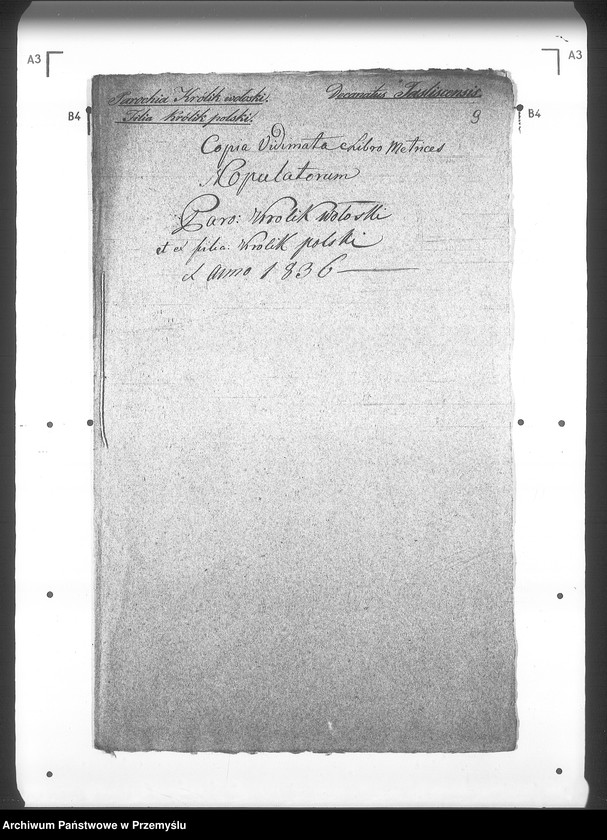 A3
A3
Parochia Królik woloski. Decanatus Jasliscensis.
B4 Filia Królik polski. 9 B4
Copia Vidimata e Libro Metrices
Copulatorum
Paro: Krolik Woloski
et ex filia: Krolik polski
d anno 1836
Archiwum Państwowe w Przemyślu